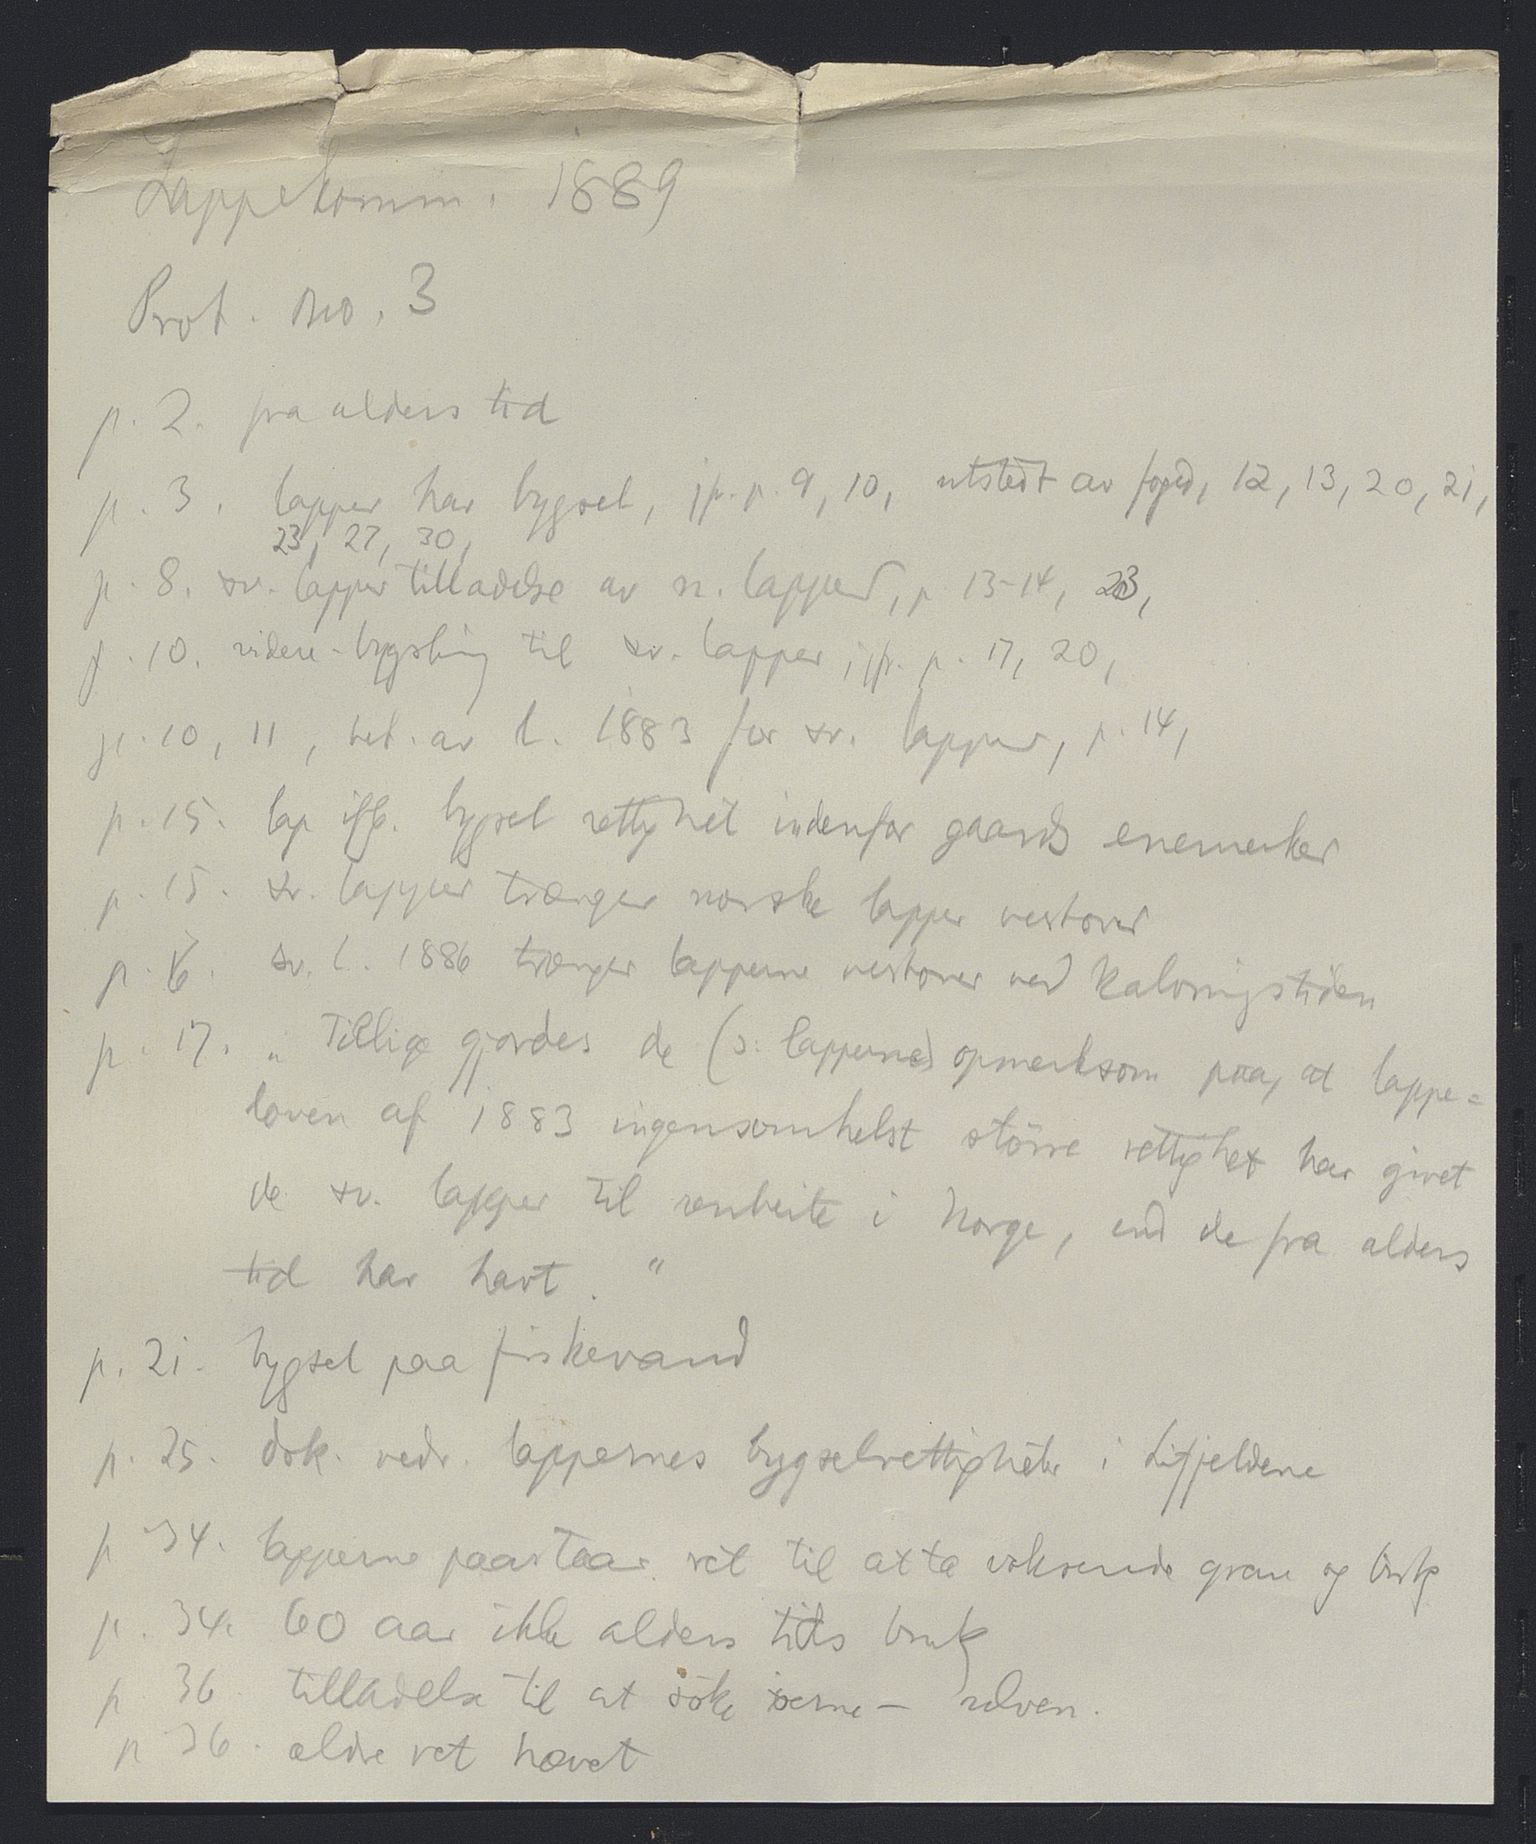 Lappekomm. 1889
Prot. no. 3
p. 2. fra alders tid
p. 3. lapper har bygsel, jfr. p. 9, 10, utstedt av foged, 12, 13, 20, 21,
23, 27, 30,
p. 8. sv. lapper tilladelse av n. lapper, p 13-14, 23,
p. 10. videre-bygsling til sv. lapper, jfr. p. 17, 20,
p. 10, 11, bet. av l. 1883 for sv. lapper, p. 14,
p. 15. lap iflg. bygsel rettighet indenfor gaards enemerker
p. 15. sv. lapper trænger norske lapper vestover
p. 16. sv. l. 1886 trænger lapperne vestover ved kalvningstiden
p. 17. "Tillige gjordes de (ɔ: lapperne) opmerksom paa, at lappe=
loven af 1883 ingensomhelst större rettighet har givet
de sv. lapper til renbeite i Norge, end de fra alders
tid har havt."
p. 21. bygsel paa fiskevand
p. 25. dok. vedr. lappernes bygselrettigheter i Lifjeldene
p 34. lapperne paastaar ret til at ta voksende gran og birk
p. 34. 60 aar ikke alders tids bruk
p 36. tilladelse til at söke öerne —
p 36. ældre ret hævet